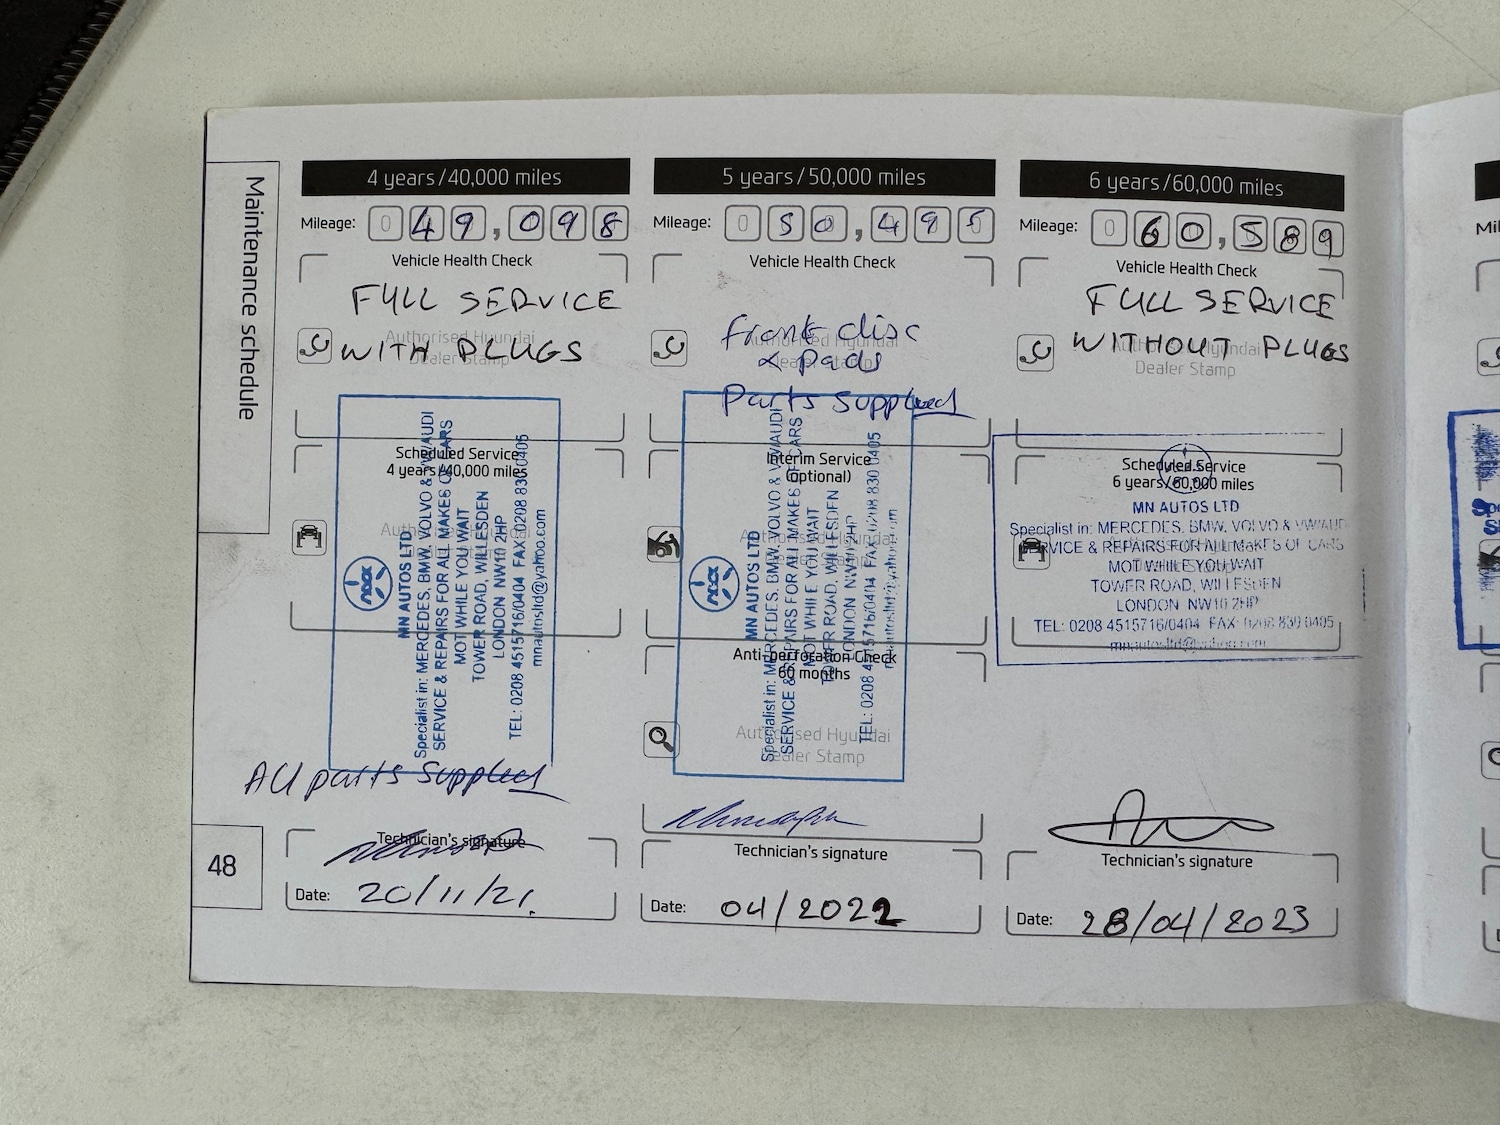 Maintenance schedule
48
4 years/40,000 miles
Mileage: 0 4 9 , 0 9 8
Vehicle Health Check
FULL SERVICE
Authorised Hyundai
WITH PLUGS
Dealer Stamp
Scheduled Service
4 years/40,000 miles
MN AUTOS LTD
Specialist in: MERCEDES, BMW, VOLVO & VW/AUDI
SERVICE & REPAIRS FOR ALL MAKES OF CARS
MOT WHILE YOU WAIT
TOWER ROAD, WILLESDEN
LONDON NW10 2HP
TEL: 0208 4515716/0404 FAX: 0208 830 0405
mnautosltd@yahoo.com
All parts supplied
Technician's signature
Date: 20/11/21.
5 years/50,000 miles
Mileage: 0 5 0 , 4 9 5
Vehicle Health Check
front disc
Authorised Hyundai
& pads
Dealer Stamp
Parts supplied
Interim Service
(optional)
MN AUTOS LTD
Specialist in: MERCEDES, BMW, VOLVO & VW/AUDI
SERVICE & REPAIRS FOR ALL MAKES OF CARS
MOT WHILE YOU WAIT
TOWER ROAD, WILLESDEN
LONDON NW10 2HP
TEL: 0208 4515716/0404 FAX: 0208 830 0405
mnautosltd@yahoo.com
Anti-perforation Check
60 months
Authorised Hyundai
Dealer Stamp
Technician's signature
Date: 04/2022
6 years/60,000 miles
Mileage: 0 6 0 , 5 8 9
Vehicle Health Check
FULL SERVICE
WITHOUT PLUGS
Authorised Hyundai
Dealer Stamp
Scheduled Service
6 years/60,000 miles
MN AUTOS LTD
Specialist in: MERCEDES, BMW, VOLVO & VW/AUDI
SERVICE & REPAIRS FOR ALL MAKES OF CARS
MOT WHILE YOU WAIT
TOWER ROAD, WILLESDEN
LONDON NW10 2HP
TEL: 0208 4515716/0404 FAX: 0208 830 0405
mnautosltd@yahoo.com
Technician's signature
Date: 28/04/2023